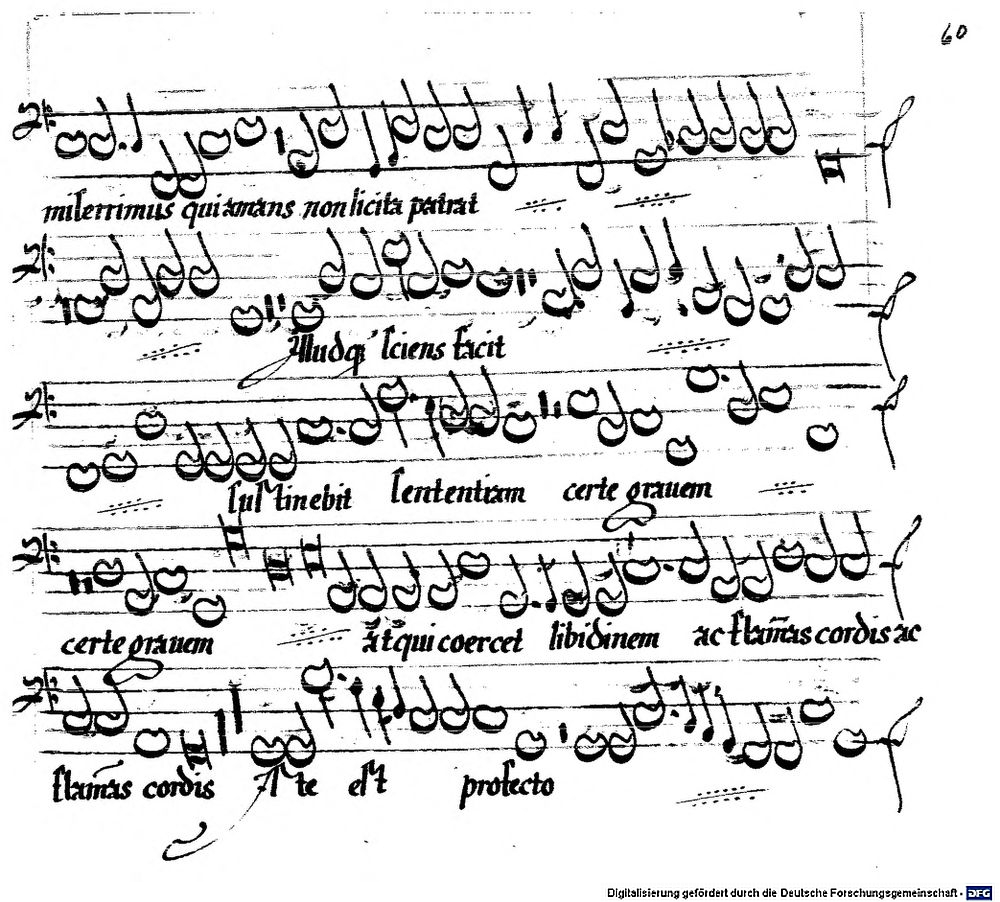 60
miserrimus qui amans non licita patrat
Illud qi sciens facit
sustinebit sententiam certe grauem
certe grauem atq̃ qui coercet libidinem ac flam̃as cordis ac
flam̃as cordis Iste est profecto
Digitalisierung gefördert durch die Deutsche Forschungsgemeinschaft - DFG